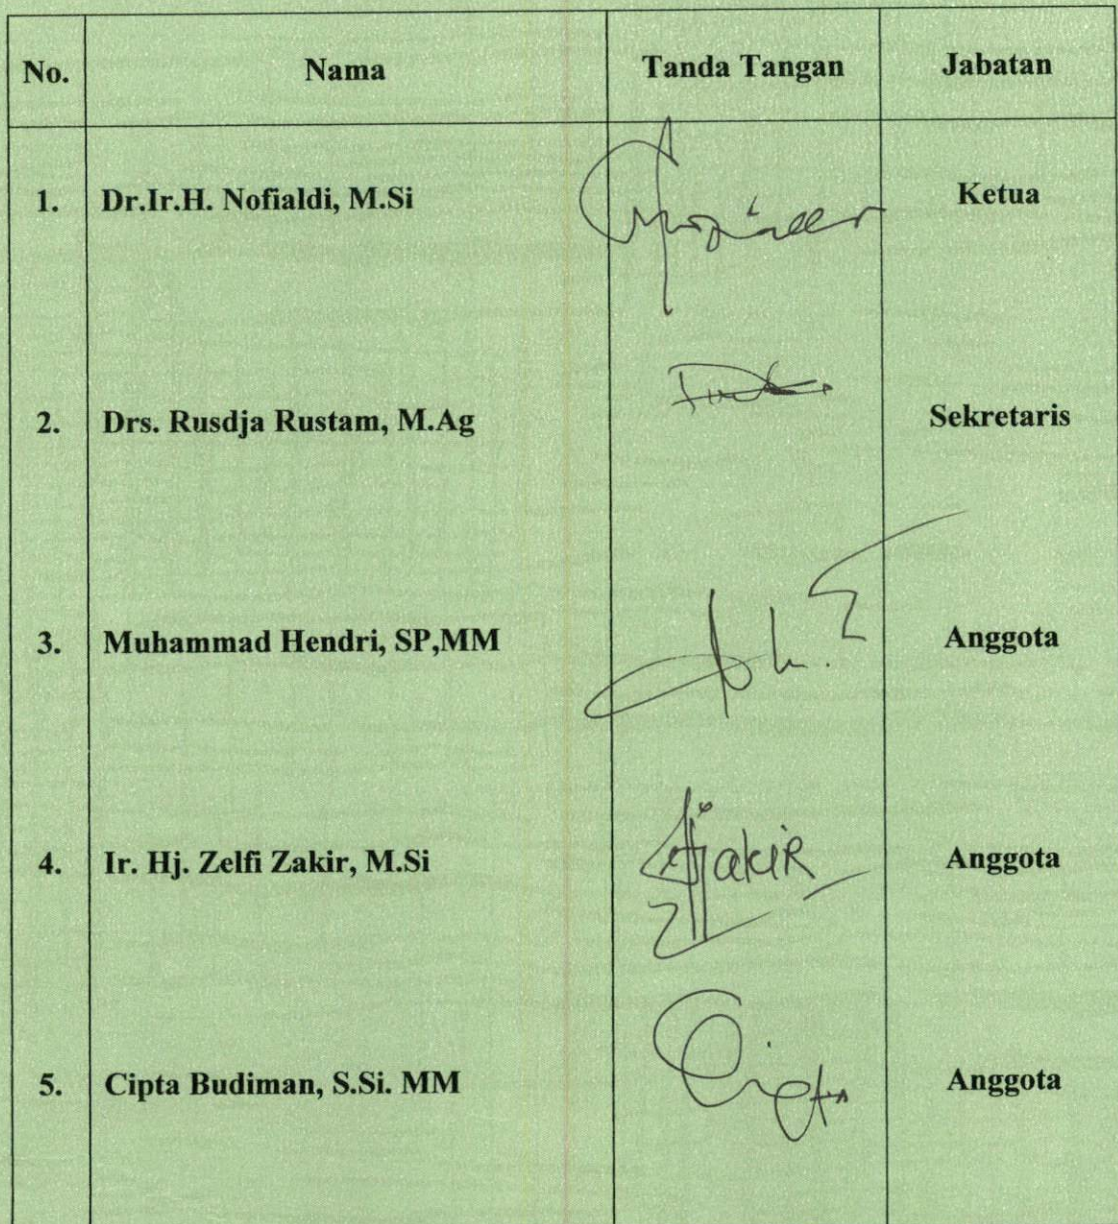 No. Nama Tanda Tangan Jabatan
1. Dr.Ir.H. Nofialdi, M.Si Ketua
2. Drs. Rusdja Rustam, M.Ag Sekretaris
3. Muhammad Hendri, SP,MM Anggota
4. Ir. Hj. Zelfi Zakir, M.Si Anggota
5. Cipta Budiman, S.Si. MM Anggota